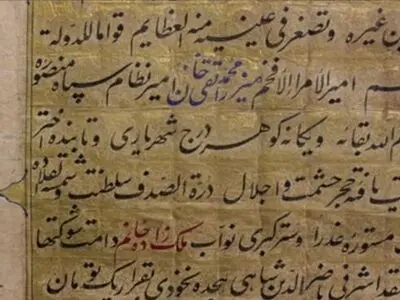 غیره و تصغر فی عینه منه العظایم قواما للدوله
امیر الامراء الافخم میرزا محمد تقی خان امیر نظام سپاه منصوره
الله بقائه و یگانه کوهر درج شهریاری و تابنده اختر
حجر حشمت و اجلال درة الصدف سلطنت و
مستوره عذرا و ستر کبری نواب ملک زاده خانم دامت شوکتها
اشرفی ناصر الدین شاهی هجده نخودی بقرار یک تومان